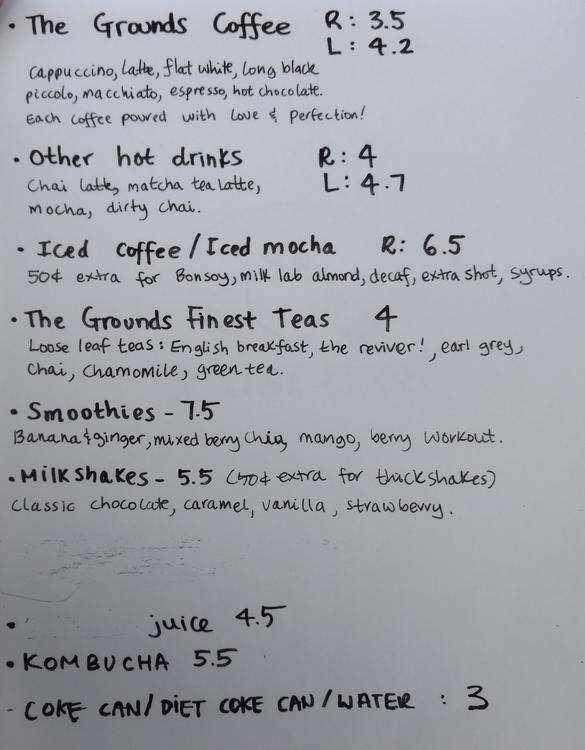 • The Grounds Coffee R: 3.5
L: 4.2
Cappuccino, Latte, flat white, long black
piccolo, macchiato, espresso, hot chocolate.
Each coffee poured with Love & Perfection!
• Other hot drinks R: 4
Chai latte, matcha tea latte, L: 4.7
mocha, dirty chai.
• Iced coffee/Iced mocha R: 6.5
50¢ extra for Bonsoy, milk lab almond, decaf, extra shot, syrups.
• The Grounds Finest Teas 4
Loose leaf teas: English breakfast, the reviver!, earl grey,
Chai, Chamomile, green tea.
• Smoothies - 7.5
Banana & ginger, mixed berry chia, mango, berry workout.
• Milkshakes - 5.5 (50¢ extra for thickshakes)
Classic chocolate, caramel, vanilla, strawberry.
• juice 4.5
• KOMBUCHA 5.5
- COKE CAN/DIET COKE CAN/WATER : 3